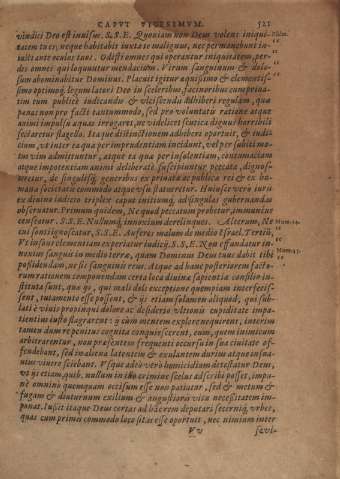 CAPVT VIGESIMVM. 521
vindici Deo est invisus. S.S.E. Quoniam non Deus volens iniqui- Psalm.
tatem tu es, neque habitabit iuxta te malignus, nec permanebunt in-
iusti ante oculos tuos. Odisti omnes qui operantur iniquitatem, per-
des omnes qui loquuntur mendacium. Virum sanguinum & dolo-
sum abominabitur Dominus. Placuit igitur aequissimo & clementis-
simo optimoq; legum latori Deo in sceleribus, facinoribus cum priua-
tim tum publice iudicandis & vlciscendis adhiberi regulam, quae
penas non pro facti tantummodo, sed pro voluntatis ratione atque
animi impulsu aquas irrogaret, ne videlicet scutica dignus horribili
sectaretur flagello. Itaque distinctionem adhibere oportuit, & iudi-
cium, vt inter ea quae per imprudentiam incidunt, vel per subiti mo-
tus vim admittuntur, atque ea quae per insolentiam, contumaciam
atque impotentiam animi deliberatè suscipiuntur peccata, dignos-
ceretur, de singulisq; sceleribus ex priuatae ac publicae rei & ex hu-
manae societatis commodo atque vsu statueretur. Huiusce vero iuris
ex diuino iudicio triplex caput initiumq; ad singulas gubernandas
obseruatur. Primum quidem, Ne quod peccatum probetur, immune
censeatur. S.S.E. Nullumq; innoxium derelinques. Alterum, Ne Num.14.
cui sons ignoscatur, S.S.E. Auferes malum de medio Israel. Tertiũ,
Vt insius clementiam experiatur iudicij. S.S.E. Non effundatur in- Num.35.
noxius sanguis in medio terrae, quam Dominus Deus tuus dabit tibi
possidendam, ne sis sanguinis reus. Atque ad hanc posteriorem facto-
rum rationem componendam certa loca diuinae sapientiae consilio in-
stituta sunt, quo ij, qui malis dolis exceptione quempiam interfecis-
sent, tutamento esse possent, & ijs etiam solamen aliquod, qui sub-
lati è viuis propinqui dolore ac desiderio vltionis cupiditate impa-
tentius iusto flagrarent: ij cùm mentem explere nequirent, interim
tamen dum re penitus cognita conquiescerent, eum, quem inimicum
arbitrarentur, non praesentem frequenti occursu in sua ciuitate of-
fendebant, sed in aliena latentem & exulantem durius atque inson-
tius viuere sciebant. Vsque adeò vero homicidium detestatur Deus,
vt ijs etiam, quib. nullum in hoc crimine scelus adscribi posset, impu-
nè omninò quemquam occisum esse non patiatur, sed & metum &
fugam & diuturnum exilium & angustioris vitae necessitatem im-
ponat. Iussit itaque Deus certas ad hãc rem deputari secerniq; vrbes,
quas cum primis commodo loco sitas esse oportuit, nec nimium inter
Vv saeui-